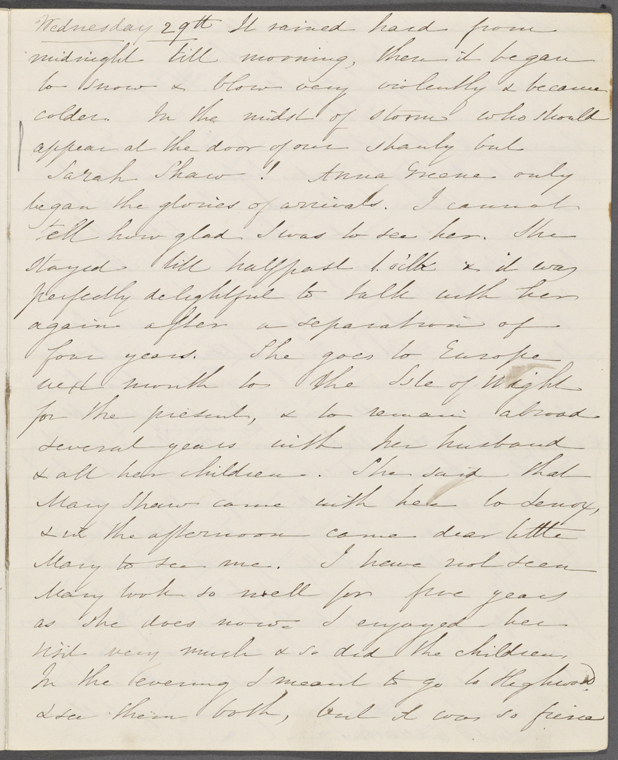 Wednesday 29th It rained hard from
midnight till morning, then it began
to snow & blow very violently & became
colder. In the midst of storm who should
appear at the door of our shanty but
Sarah Shaw! Anna Greene only
began the glories of arrivals. I cannot
tell how glad I was to see her. She
stayed till halfpast 1. o'clk & it was
perfectly delightful to talk with her
again after a separation of
four years. She goes to Europe
next month to the Isle of Wight
for the present, & to remain abroad
several years with her husband
& all her children. She said that
Mary Shaw came with her to Lenox,
& in the afternoon came dear little
Mary to see me. I have not seen
Mary look so well for five years
as she does now. I enjoyed her
visit very much & so did the children.
In the evening I meant to go to Highwood
& see them both, but it was so